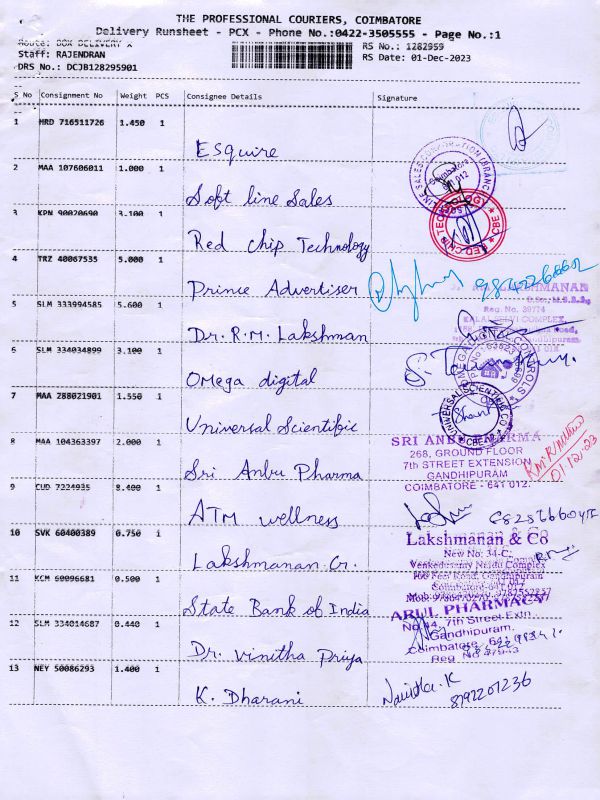 THE PROFESSIONAL COURIERS, COIMBATORE
Delivery Runsheet - PCX - Phone No.:0422-3505555 - Page No.:1
Route: BOX DELIVERY X
RS No.: 1282959
Staff: RAJENDRAN
RS Date: 01-Dec-2023
DRS No.: DCJB128295901
S No Consignment No Weight PCS Consignee Details Signature
1 MRD 716511726 1.450 1
Esquire
2 MAA 107606011 1.000 1
Soft line Sales
3 KPN 90020690 3.100 1
Red chip Technology
4 TRZ 40067535 5.000 1
Prince Advertiser
5 SLM 333994585 5.600 1
Dr. R.M. Lakshman
6 SLM 334034899 3.100 1
Omega digital
7 MAA 288021901 1.550 1
Universal Scientific
8 MAA 104363397 2.000 1
Sri Anbu Pharma
9 CUD 7224935 8.400 1
ATM wellness
10 SVK 60400389 0.750 1
Lakshmanan Cr.
11 KCM 60096681 0.500 1
State Bank of India
12 SLM 334014687 0.440 1
Dr. Vinitha Priya
13 NEY 50086293 1.400 1
K. Dharani
RED CHIP TECHNOLOGY
CBE
LAKSHMANAN
Reg. No. 39774
KALAI SELVI COMPLEX
OMEGA DIGITAL CONTROLS
UNIVERSAL SCIENTIFIC CO
SRI ANBU PHARMA
268, GROUND FLOOR
7th STREET EXTENSION
GANDHIPURAM
COIMBATORE - 641 012.
01.12.23
Lakshmanan & Co
New No: 34-C,
Venkedasamy Naidu Complex
ARUL PHARMACY
No.44, 7th Street Extn
Gandhipuram,
Coimbatore - 641
Navitha. K
8192201236